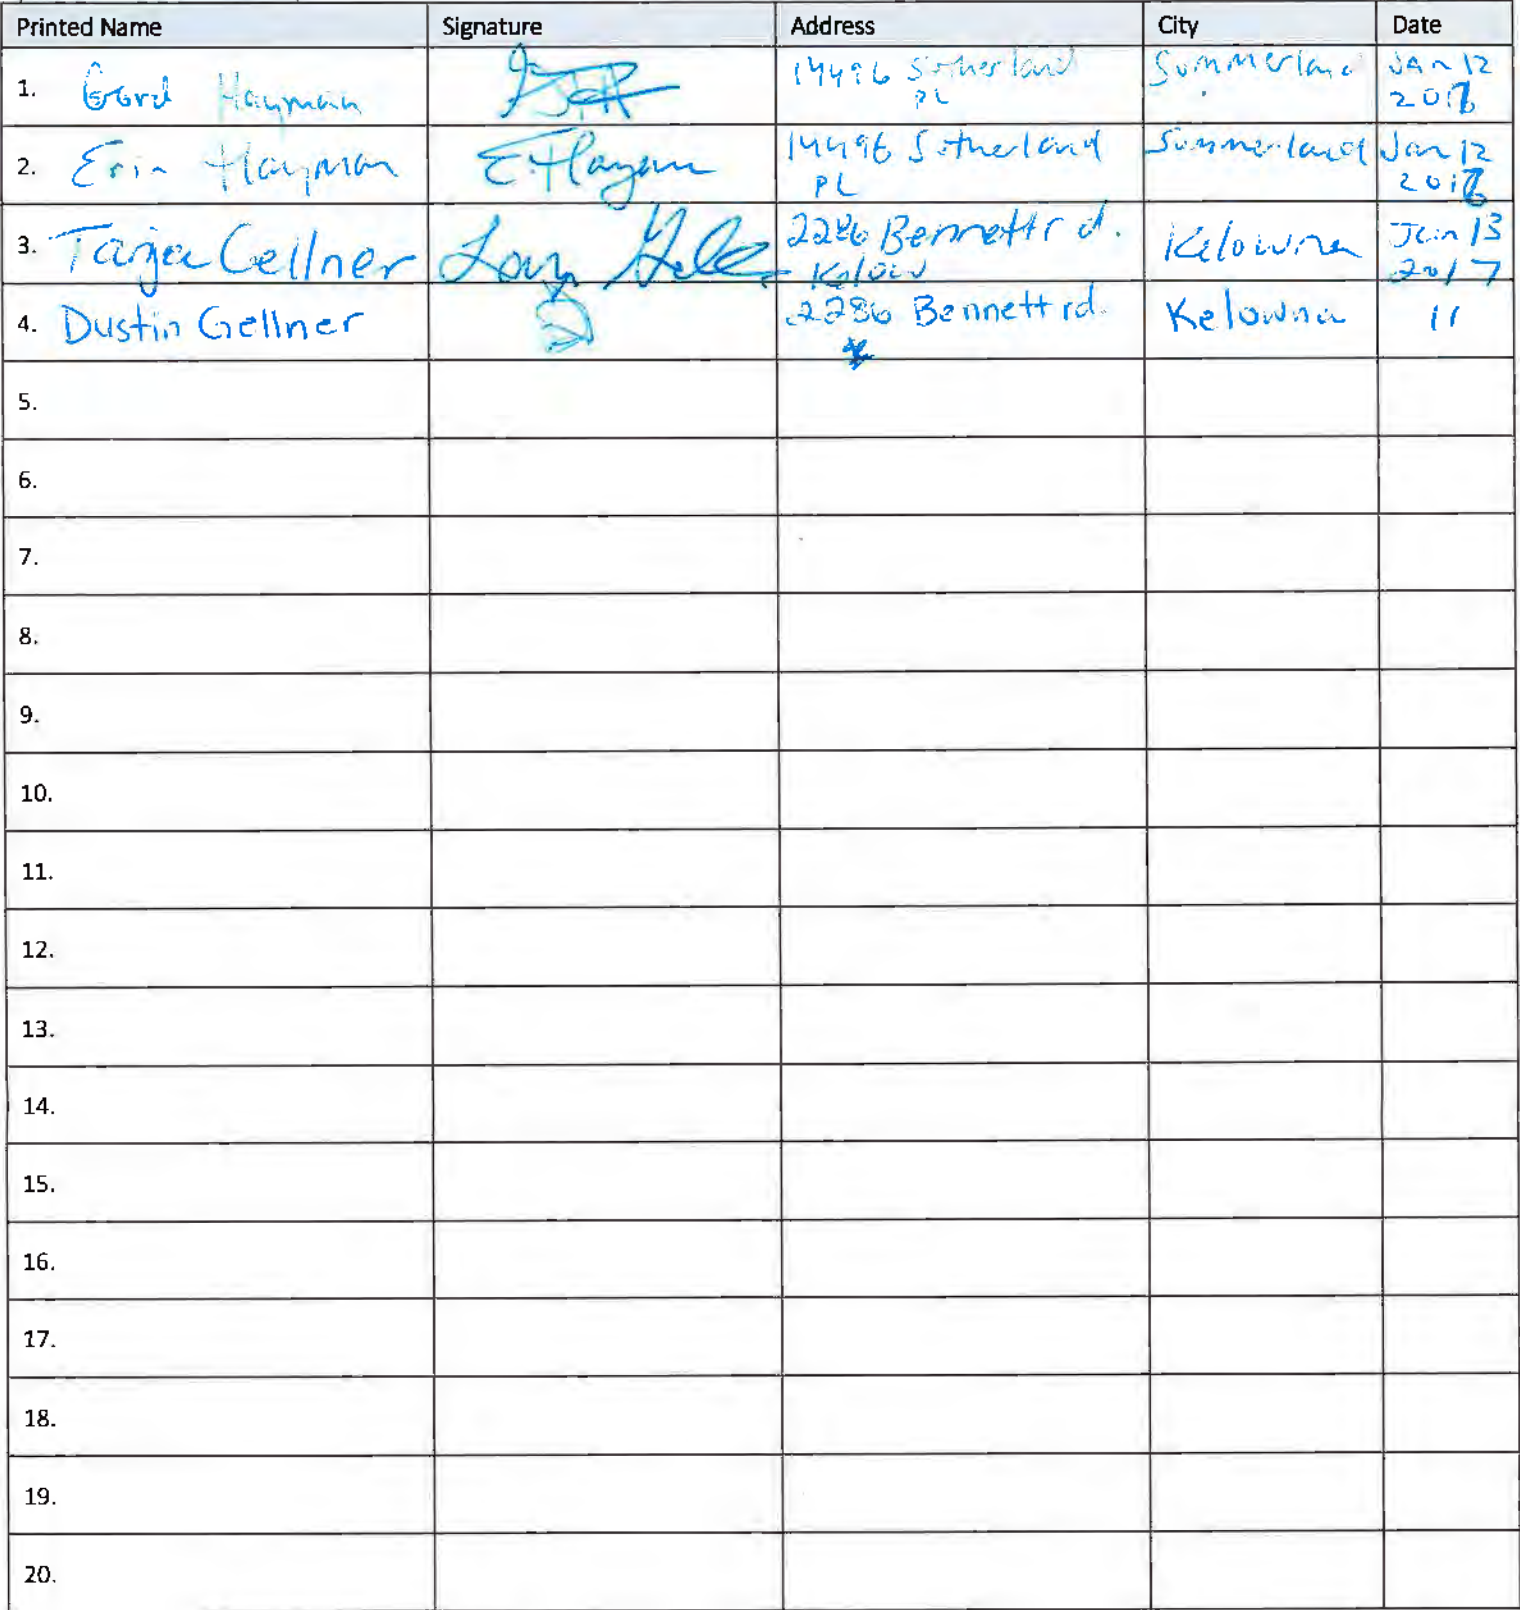 Printed Name Signature Address City Date
1. Gord Hayman 14496 Sutherland Summerland Jan 12
PL 2017
2. Erin Hayman E. Hayman 14496 Sutherland Summerland Jan 12
PL 2017
3. Tanja Gellner 2286 Bennett rd. Kelowna Jan 13
Kelow 2017
4. Dustin Gellner 2286 Bennett rd. Kelowna 11
5.
6.
7.
8.
9.
10.
11.
12.
13.
14.
15.
16.
17.
18.
19.
20.